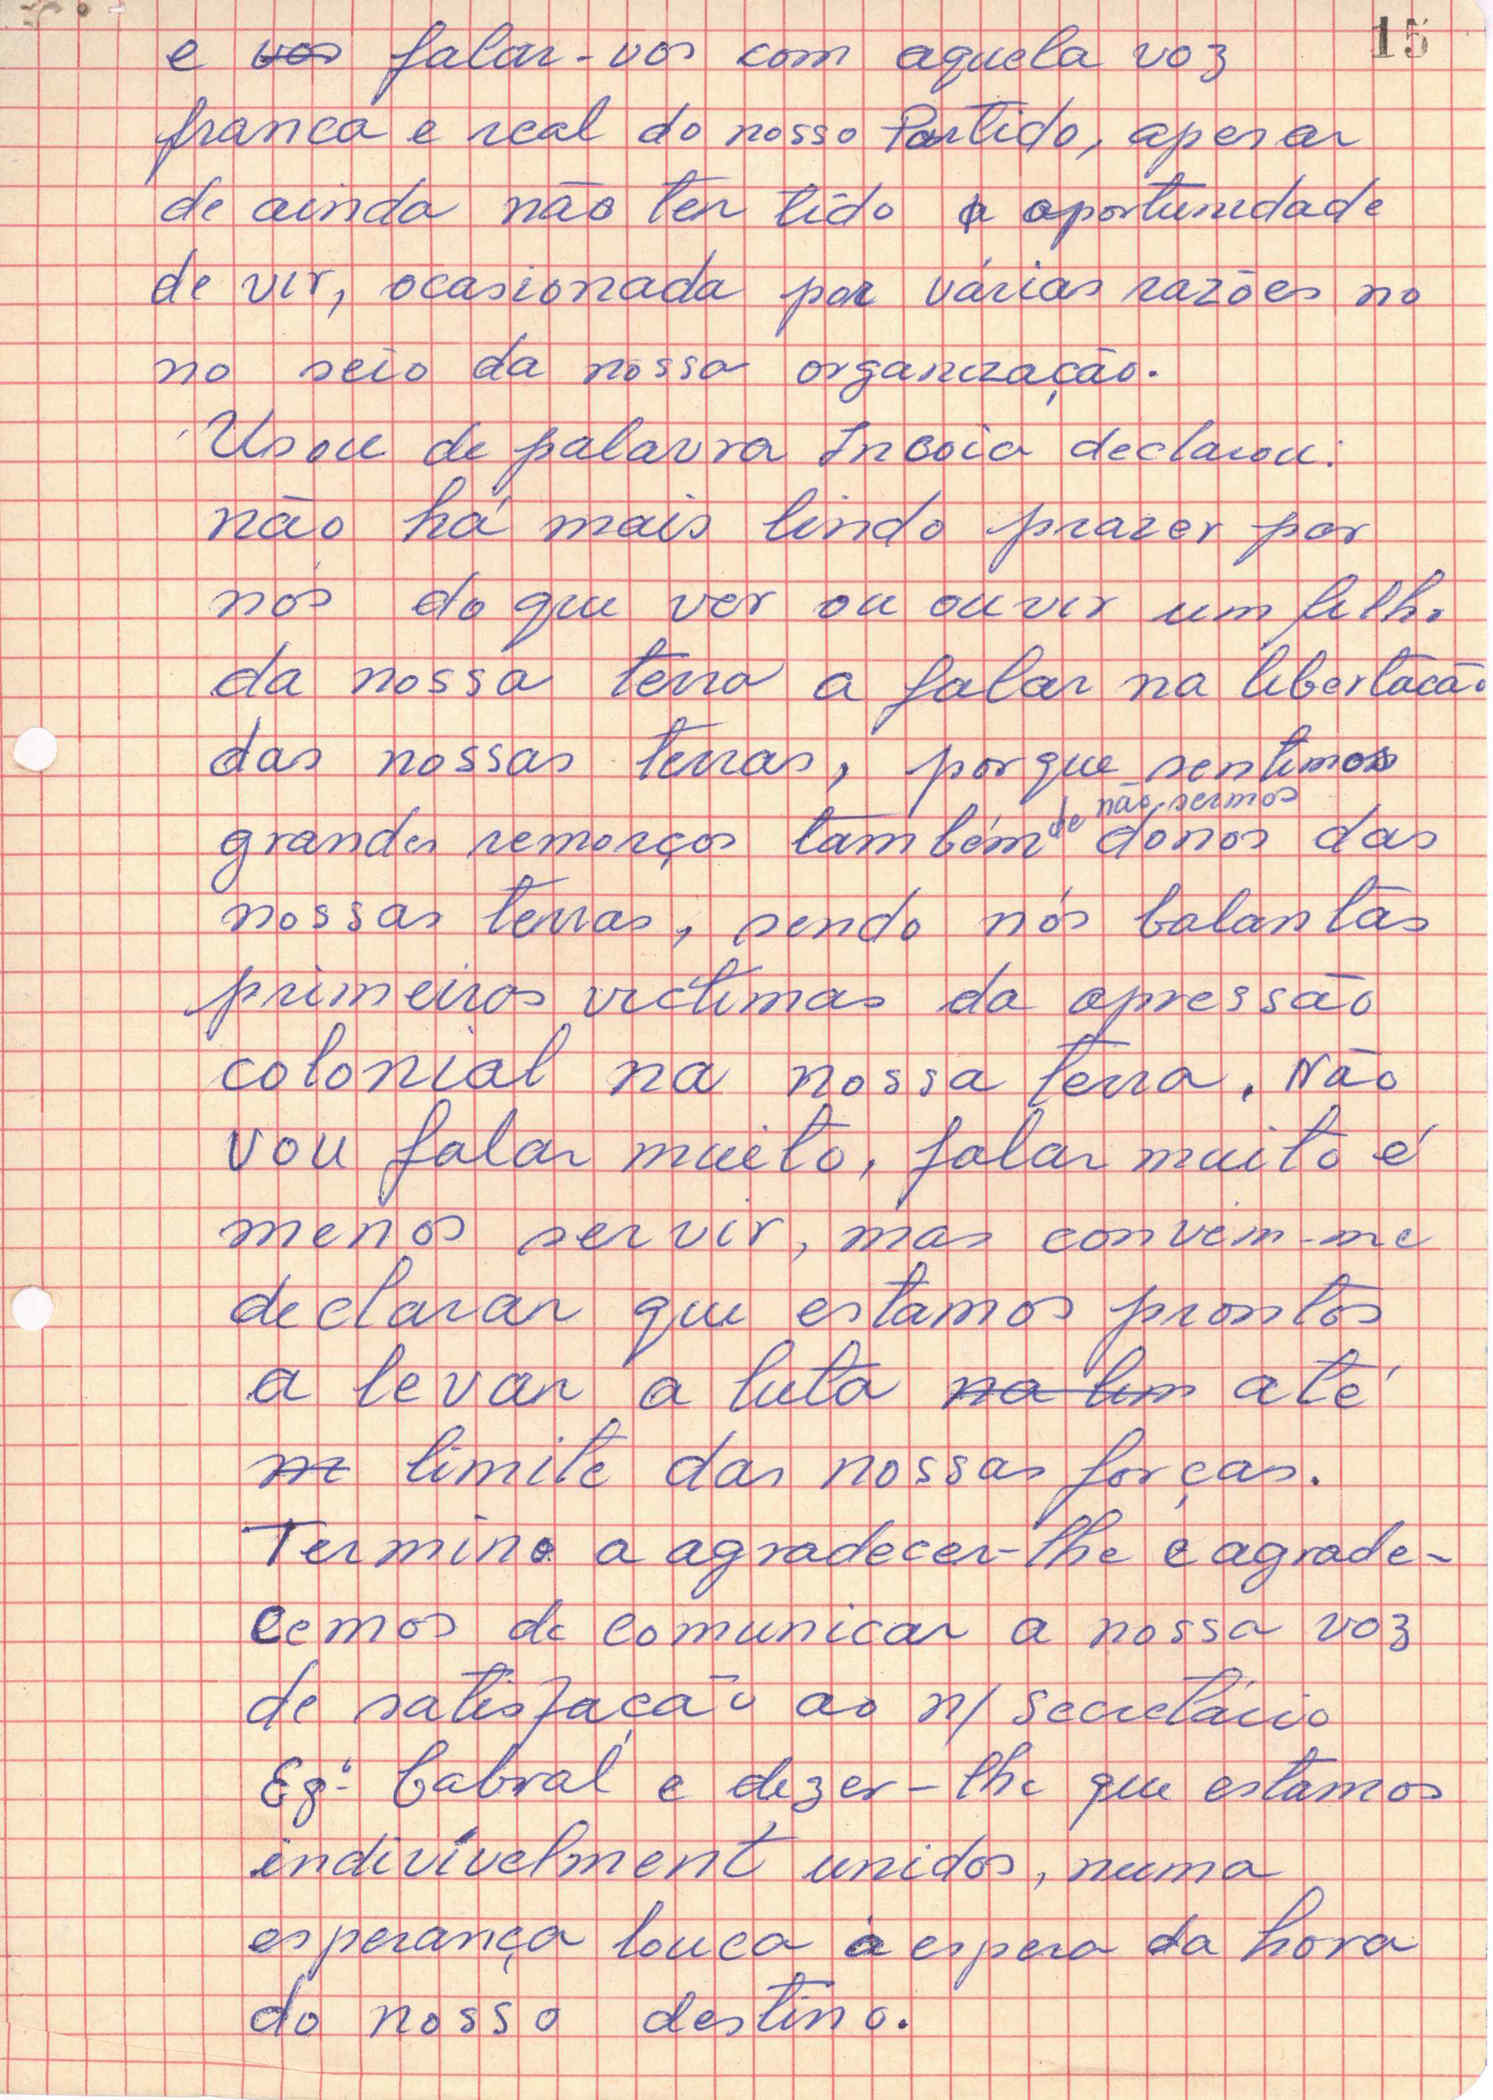 15
e vos falar-vos com aquela voz
franca e real do nosso Partido, apesar
de ainda não ter tido a oportunidade
de vir, ocasionada por várias razões no
no seio da nossa organização.
Usou de palavra Incoia declarou:
não há mais lindo prazer por
nós do que ver ou ouvir um filho
da nossa terra a falar na libertacão
das nossas terras, porque sentimos
de não sermos
grandes remorços também donos das
nossas terras, sendo nós balantas
primeiros victimas da opressão
colonial na nossa terra. Não
vou falar muito, falar muito é
menos servir, mas convém-me
declarar que estamos prontos
a levar a luta na lim até
limite das nossas forças.
Termino a agradecer-lhe e agrade-
cemos de comunicar a nossa voz
de satisfação ao n/ secretário
Egº Cabral e dizer-lhe que estamos
indivívelment unidos, numa
esperança louca à espera da hora
do nosso destino.